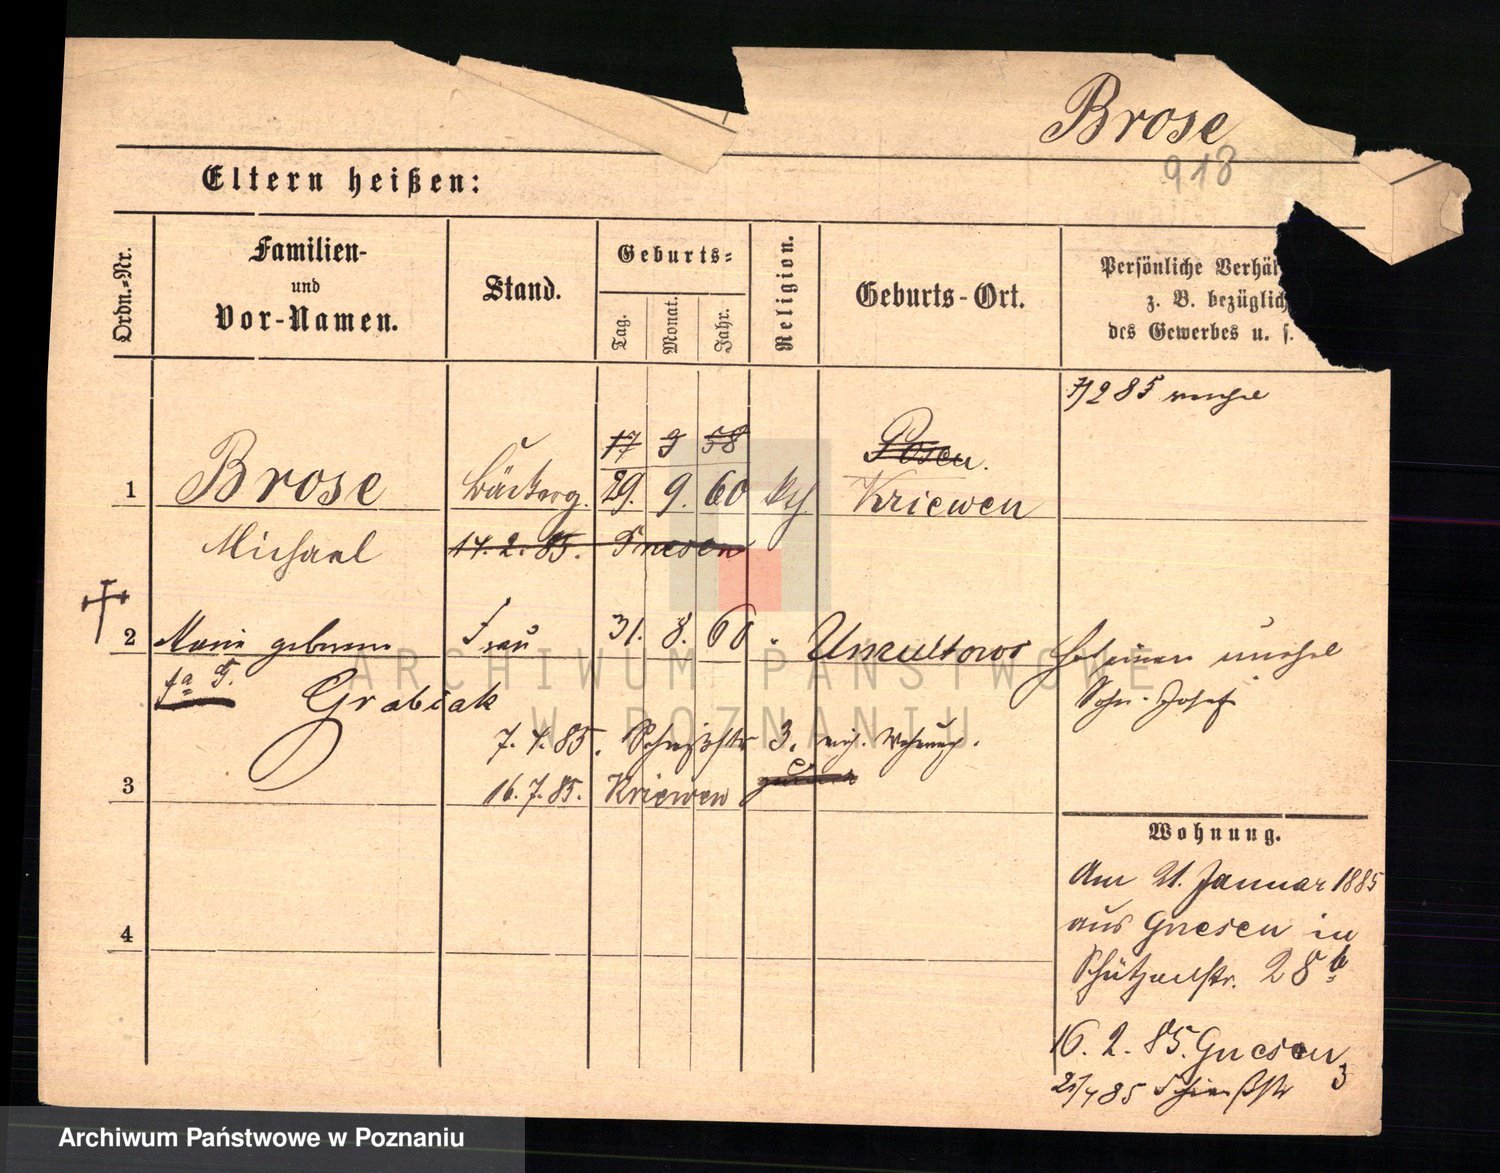 Brose
918
Eltern heißen:
Ordn.-Nr.
Familien-
und
Vor-Namen.
Stand.
Geburts-
Tag.
Monat.
Jahr.
Religion.
Geburts-Ort.
Persönliche Verhäl
z. B. bezüglich
des Gewerbes u. s.
7/2 85
17 9 58 Posen.
1 Brose Bäckerg. 29. 9. 60 kth Kriewen
Michael 14. 2. 85. Gnesen
2 Marie geborene Frau 31. 8. 60 " Umultowo hat einen unehel
Grabiak Sohn Josef
7. 4. 85. 3.
16. 7. 85. Kriewen
3
Wohnung.
Am 21. Januar 1885
aus Gnesen in
Schützenstr. 28 b
16. 2. 85. Gnesen
21/4 85 Schießstr 3
4
ARCHIWUM PAŃSTWOWE
W POZNANIU
Archiwum Państwowe w Poznaniu